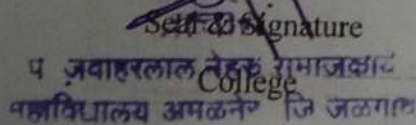 Seal & Signature
प जवाहरलाल नेहरू समाजकार्य
College
महाविद्यालय अमळनेर जि जळगाव